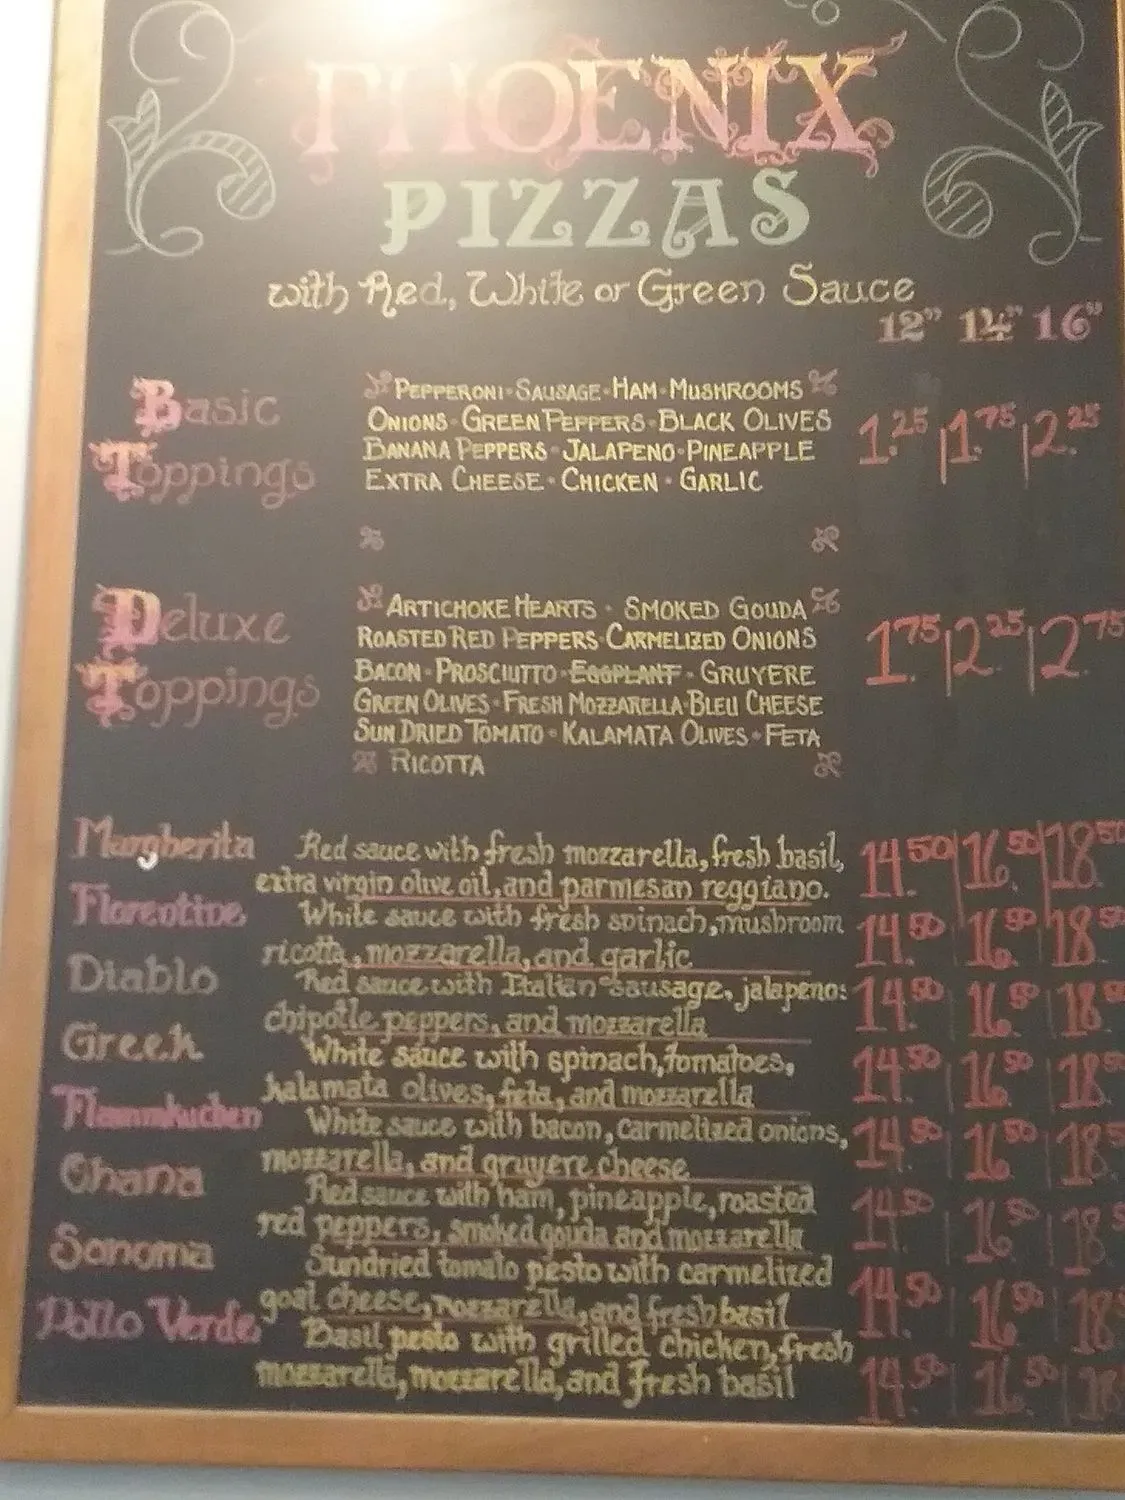 PHOENIX
PIZZAS
with Red, White or Green Sauce
12" 14" 16"
Basic Toppings
PEPPERONI · SAUSAGE · HAM · MUSHROOMS
ONIONS · GREEN PEPPERS · BLACK OLIVES
BANANA PEPPERS · JALAPENO · PINEAPPLE
EXTRA CHEESE · CHICKEN · GARLIC
1.25 | 1.75 | 2.25
Deluxe Toppings
ARTICHOKE HEARTS · SMOKED GOUDA
ROASTED RED PEPPERS · CARMELIZED ONIONS
BACON · PROSCIUTTO · EGGPLANT · GRUYERE
GREEN OLIVES · FRESH MOZZARELLA · BLEU CHEESE
SUN DRIED TOMATO · KALAMATA OLIVES · FETA
RICOTTA
1.75 | 2.25 | 2.75
Margherita Red sauce with fresh mozzarella, fresh basil, 14.50 | 16.50 | 18.50
extra virgin olive oil, and parmesan reggiano.
Florentine White sauce with fresh spinach, mushroom 14.50 | 16.50 | 18.50
ricotta, mozzarella, and garlic
Diablo Red sauce with Italian sausage, jalapenos 14.50 | 16.50 | 18.50
chipotle peppers, and mozzarella
Greek White sauce with spinach, tomatoes, 14.50 | 16.50 | 18.50
kalamata olives, feta, and mozzarella
Flammkuchen White sauce with bacon, carmelized onions, 14.50 | 16.50 | 18.5
mozzarella, and gruyere cheese
Ohana Red sauce with ham, pineapple, roasted 14.50 | 16.50 | 18.5
red peppers, smoked gouda and mozzarella
Sonoma Sundried tomato pesto with carmelized 14.50 | 16.50 | 18
goat cheese, mozzarella, and fresh basil
Pollo Verde Basil pesto with grilled chicken, fresh 14.50 | 16.50 | 18
mozzarella, mozzarella, and fresh basil